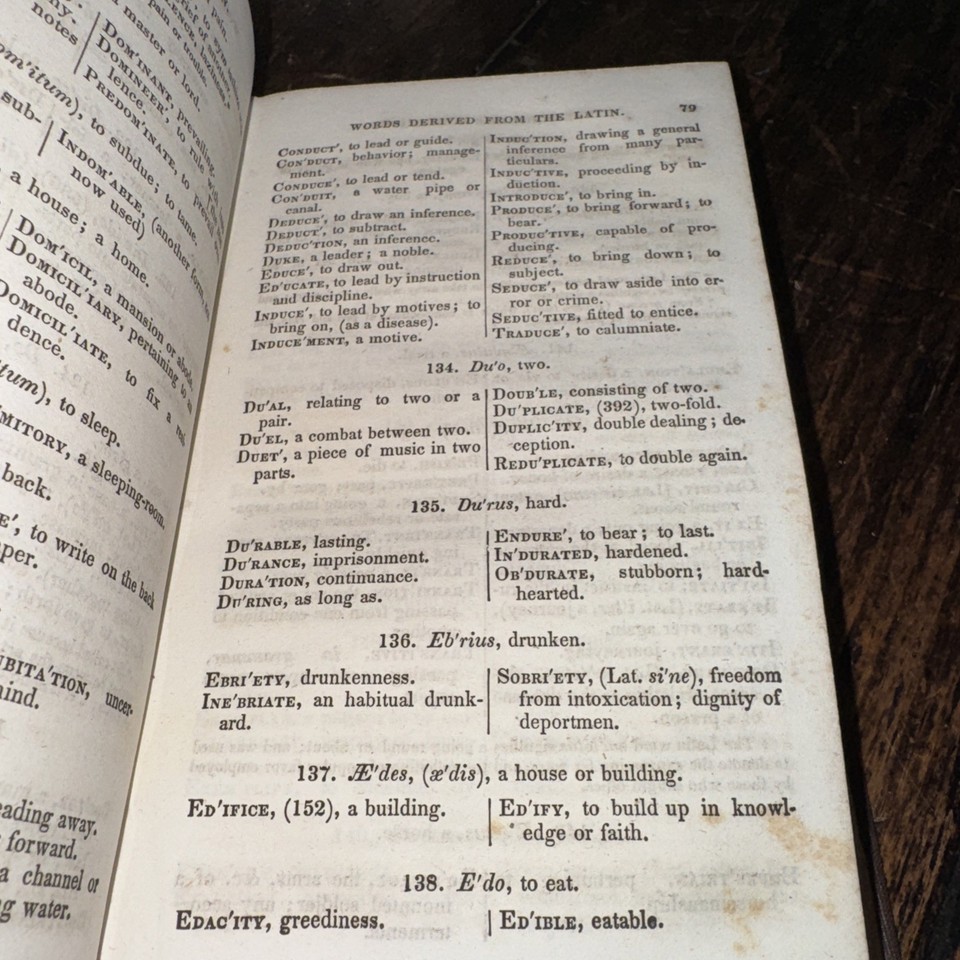 pain.
notes
DOM'INANT, prevailing.
DOMINEER', to rule with
lence.
PREDOM'INATE, to prevail
a master or lord.
om'itum), to subdue; to tame.
sub-
INDOM'ABLE, (another form,
now used)
a house; a home.
DOM'ICIL, a mansion or abode.
DOMICIL'IARY, pertaining to an
abode.
DOMICIL'IATE, to fix a resi-
dence.
itum), to sleep.
MITORY, a sleeping-room.
back.
E', to write on the back
per.
UBITA'TION, uncer-
ind.
eading away.
forward.
a channel or
ng water.
WORDS DERIVED FROM THE LATIN. 79
CONDUCT', to lead or guide.
CON'DUCT, behavior; manage-
ment.
CONDUCE', to lead or tend.
CON'DUIT, a water pipe or
canal.
DEDUCE', to draw an inference.
DEDUCT', to subtract.
DEDUC'TION, an inference.
DUKE, a leader; a noble.
EDUCE', to draw out.
ED'UCATE, to lead by instruction
and discipline.
INDUCE', to lead by motives; to
bring on, (as a disease).
INDUCE'MENT, a motive.
INDUC'TION, drawing a general
inference from many par-
ticulars.
INDUC'TIVE, proceeding by in-
duction.
INTRODUCE', to bring in.
PRODUCE', to bring forward; to
bear.
PRODUC'TIVE, capable of pro-
ducing.
REDUCE', to bring down; to
subject.
SEDUCE', to draw aside into er-
ror or crime.
SEDUC'TIVE, fitted to entice.
TRADUCE', to calumniate.
134. Du'o, two.
DU'AL, relating to two or a
pair.
DU'EL, a combat between two.
DUET', a piece of music in two
parts.
DOUB'LE, consisting of two.
DU'PLICATE, (392), two-fold.
DUPLIC'ITY, double dealing; de-
ception.
REDU'PLICATE, to double again.
135. Du'rus, hard.
DU'RABLE, lasting.
DU'RANCE, imprisonment.
DURA'TION, continuance.
DU'RING, as long as.
ENDURE', to bear; to last.
IN'DURATED, hardened.
OB'DURATE, stubborn; hard-
hearted.
136. Eb'rius, drunken.
EBRI'ETY, drunkenness.
INE'BRIATE, an habitual drunk-
ard.
SOBRI'ETY, (Lat. si'ne), freedom
from intoxication; dignity of
deportmen.
137. Æ'des, (æ'dis), a house or building.
ED'IFICE, (152), a building.
ED'IFY, to build up in knowl-
edge or faith.
138. E'do, to eat.
EDAC'ITY, greediness.
ED'IBLE, eatable.